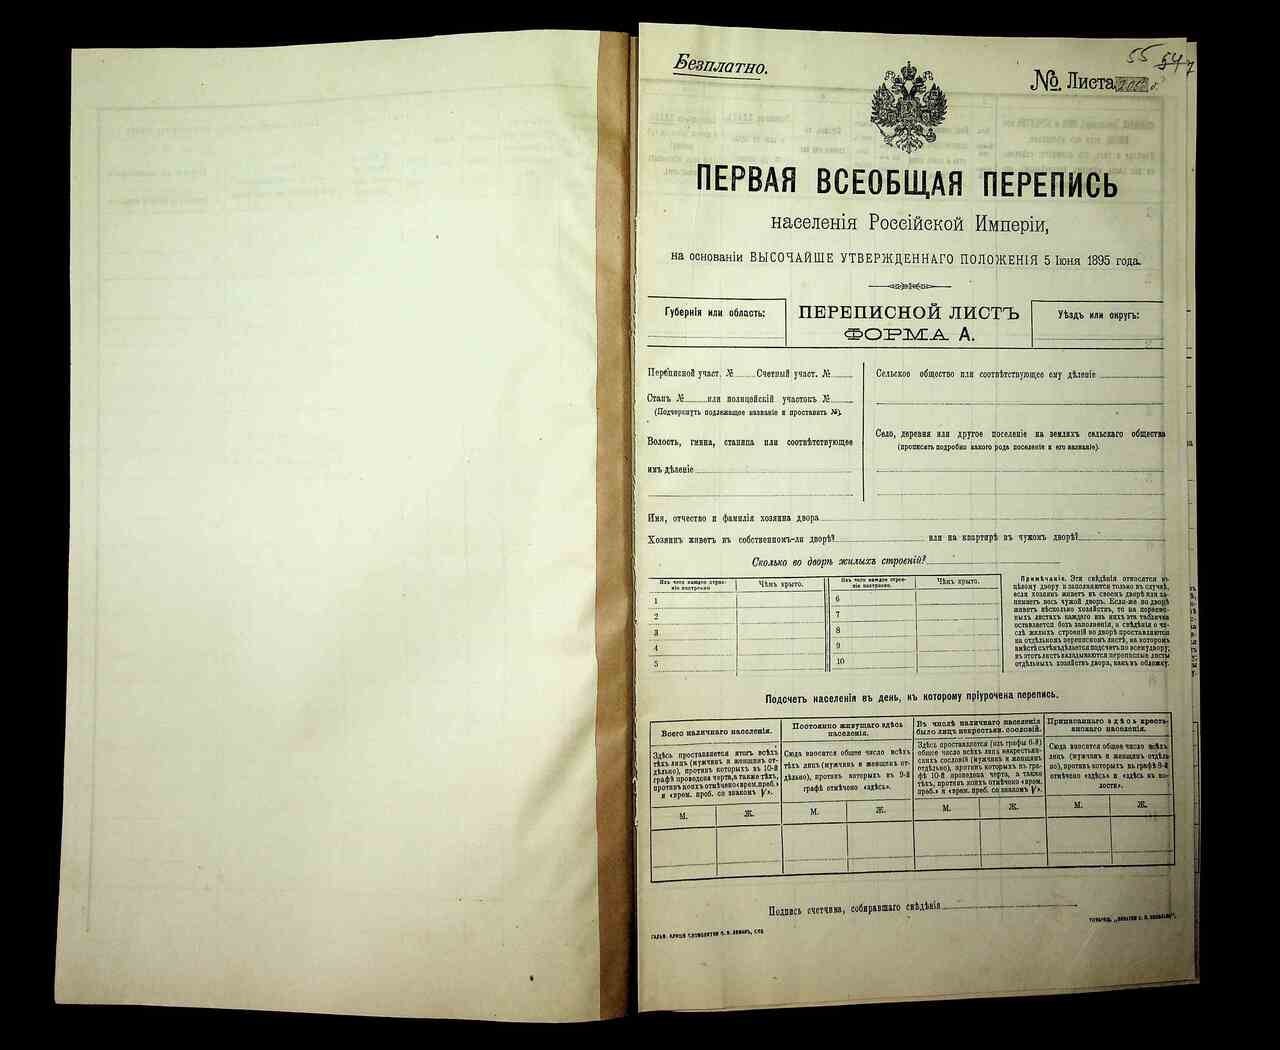 55
Безплатно.
№ Листа
ПЕРВАЯ ВСЕОБЩАЯ ПЕРЕПИСЬ
населенія Россійской Имперіи,
на основаніи ВЫСОЧАЙШЕ УТВЕРЖДЕННАГО ПОЛОЖЕНІЯ 5 Іюня 1895 года.
Губернія или область:
ПЕРЕПИСНОЙ ЛИСТЪ
ФОРМА А.
Уѣздъ или округъ:
Переписной участ. № Счетный участ. №
Станъ № или полицейскій участокъ №
(Подчеркнуть подлежащее названіе и проставить №).
Волость, гмина, станица или соотвѣтствующее
имъ дѣленіе
Сельское общество или соотвѣтствующее ему дѣленіе
Село, деревня или другое поселеніе на земляхъ сельскаго общества
(прописать подробно какого рода поселеніе и его названіе).
Имя, отчество и фамилія хозяина двора
Хозяинъ живетъ въ собственномъ-ли дворѣ? или на квартирѣ въ чужомъ дворѣ?
Сколько во дворѣ жилыхъ строеній?
Изъ чего каждое строе-
ніе построено
Чѣмъ крыто.
1
2
3
4
5
Изъ чего каждое строе-
ніе построено
Чѣмъ крыто.
6
7
8
9
10
Примѣчаніе. Эти свѣдѣнія относятся къ
цѣлому двору и заполняются только въ случаѣ,
если хозяинъ живетъ въ своемъ дворѣ или за-
нимаетъ весь чужой дворъ. Если-же во дворѣ
живетъ нѣсколько хозяйствъ, то на перепис-
ныхъ листахъ каждаго изъ нихъ эта табличка
оставляется безъ заполненія, а свѣдѣнія о чи-
слѣ жилыхъ строеній во дворѣ проставляются
на отдѣльномъ переписномъ листѣ, на которомъ
вмѣстѣ съ тѣмъ дѣлается подсчетъ по всему двору;
въ этотъ листъ вкладываются переписные листы
отдѣльныхъ хозяйствъ двора, какъ въ обложку.
Подсчетъ населенія въ день, къ которому пріурочена перепись.
Всего наличнаго населенія.
Здѣсь проставляется итогъ всѣхъ
тѣхъ лицъ (мужчинъ и женщинъ от-
дѣльно), противъ которыхъ въ 10-й
графѣ проведена черта, а также тѣхъ,
противъ коихъ отмѣчено «врем. преб.»
и «врем. преб. со знакомъ V».
М. Ж.
Постоянно живущаго здѣсь
населенія.
Сюда вносится общее число всѣхъ
тѣхъ лицъ (мужчинъ и женщинъ от-
дѣльно), противъ которыхъ въ 9-й
графѣ отмѣчено «здѣсь».
М. Ж.
Въ числѣ наличнаго населенія
было лицъ некрестьян. сословій.
Здѣсь проставляется (изъ графы 6-й)
общее число всѣхъ лицъ некрестьян-
скихъ сословій (мужчинъ и женщинъ
отдѣльно), противъ которыхъ въ гра-
фѣ 10-й проведена черта, а также
тѣхъ, противъ коихъ отмѣчено «врем.
преб.» и «врем. преб. со знакомъ V».
М. Ж.
Приписаннаго здѣсь кресть-
янскаго населенія.
Сюда вносится общее число всѣхъ
лицъ (мужчинъ и женщинъ отдѣль-
но), противъ которыхъ въ графѣ 8-й
отмѣчено «здѣсь» и «здѣсь въ во-
лости».
М. Ж.
Подпись счетчика, собиравшаго свѣдѣнія